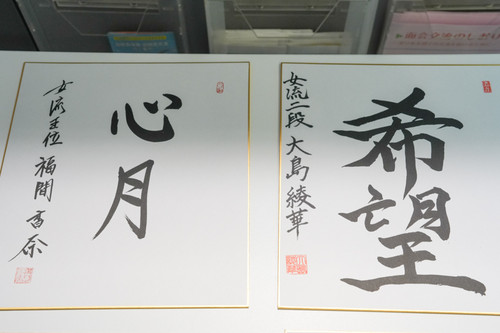 心月
女流王位 福間香奈
希望
女流二段 大島綾華